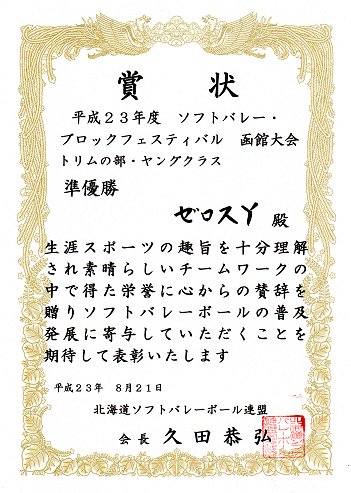 賞状
平成23年度 ソフトバレー・
ブロックフェスティバル 函館大会
トリムの部・ヤングクラス
準優勝
ゼロスY 殿
生涯スポーツの趣旨を十分理解
され素晴らしいチームワークの
中で得た栄誉に心からの賛辞を
贈りソフトバレーボールの普及
発展に寄与していただくことを
期待して表彰いたします
平成23年 8月21日
北海道ソフトバレーボール連盟
会長 久田恭弘